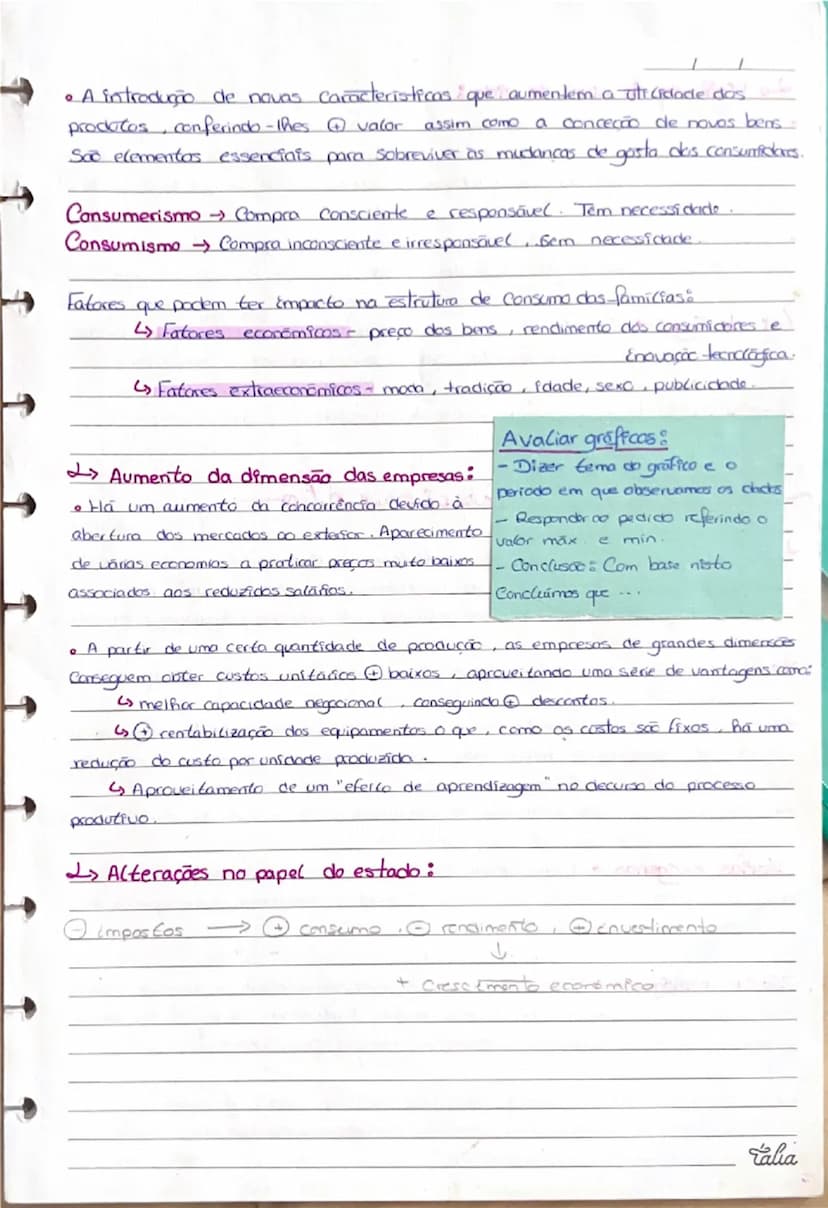 • A introdução de novas características que aumentem a utilidade dos
produtos, conferindo-lhes ⊕ valor assim como a conceção de novos bens
São elementos essenciais para sobreviver às mudanças de gosto dos consumidores.
Consumerismo → Compra consciente e responsável. Tem necessidade.
Consumismo → Compra inconsciente e irresponsável, sem necessidade.
Fatores que podem ter impacto na estrutura de consumo das famílias:
↳ Fatores económicos - preço dos bens, rendimento dos consumidores e
inovação tecnológica.
↳ Fatores extraeconómicos - moda, tradição, idade, sexo, publicidade.
↳ Aumento da dimensão das empresas:
• Há um aumento da concorrência devido à
abertura dos mercados ao exterior. Aparecimento
de várias economias a praticar preços muito baixos
associados aos reduzidos salários.
Avaliar gráficos:
- Dizer tema do gráfico e o
período em que observamos os dados
- Responder ao pedido referindo o
valor máx e min.
- Conclusão: Com base nisto
Concluímos que ...
• A partir de uma certa quantidade de produção, as empresas de grandes dimensões
Conseguem obter custos unitários ⊕ baixos, aproveitando uma série de vantagens como:
↳ melhor capacidade negocional, conseguindo ⊕ descontos.
↳ ⊕ rentabilização dos equipamentos o que, como os custos são fixos, há uma
redução do custo por unidade produzida.
↳ Aproveitamento de um "efeito de aprendizagem" no decurso do processo
produtivo.
↳ Alterações no papel do estado:
⊖ impostos → ⊕ consumo, ⊖ rendimento, ⊕ investimento
↓
+ Crescimento económico
tália